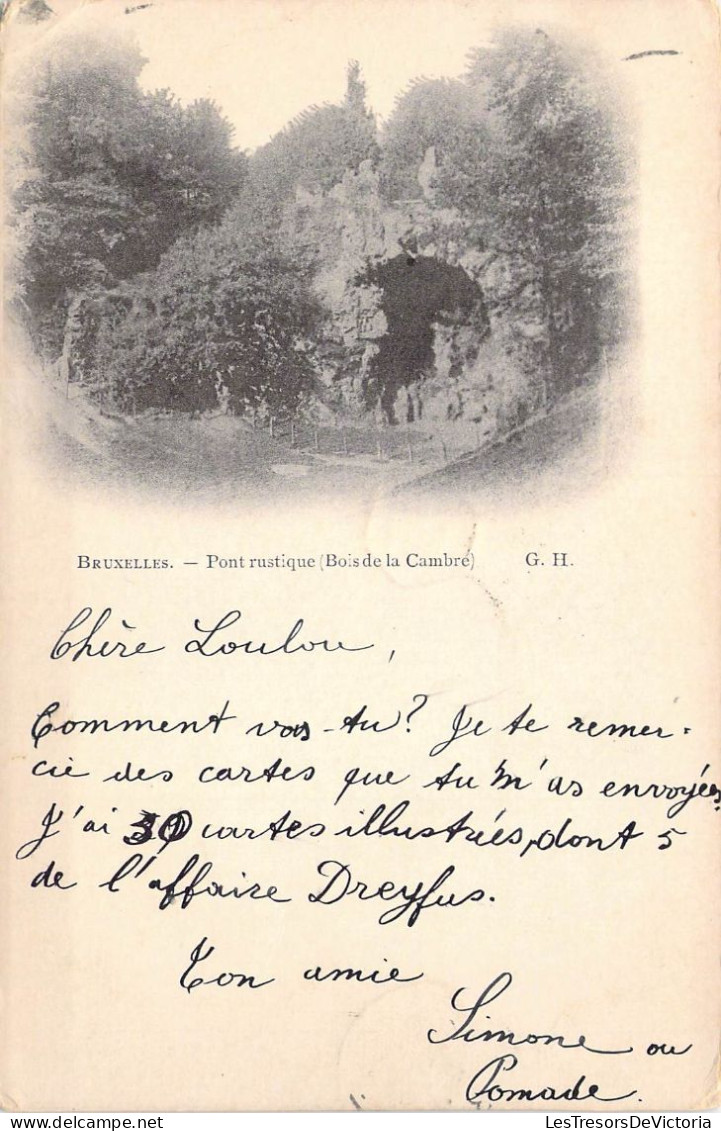 BRUXELLES. — Pont rustique (Bois de la Cambre) G. H.
Chère Loulou,
Comment vas-tu? Je te remer-
cie des cartes que tu m'as envoyées.
J'ai 30 cartes illustrés, dont 5
de l'affaire Dreyfus.
Ton amie
Simone ou
Pomade.
LesTresorsDeVictoria